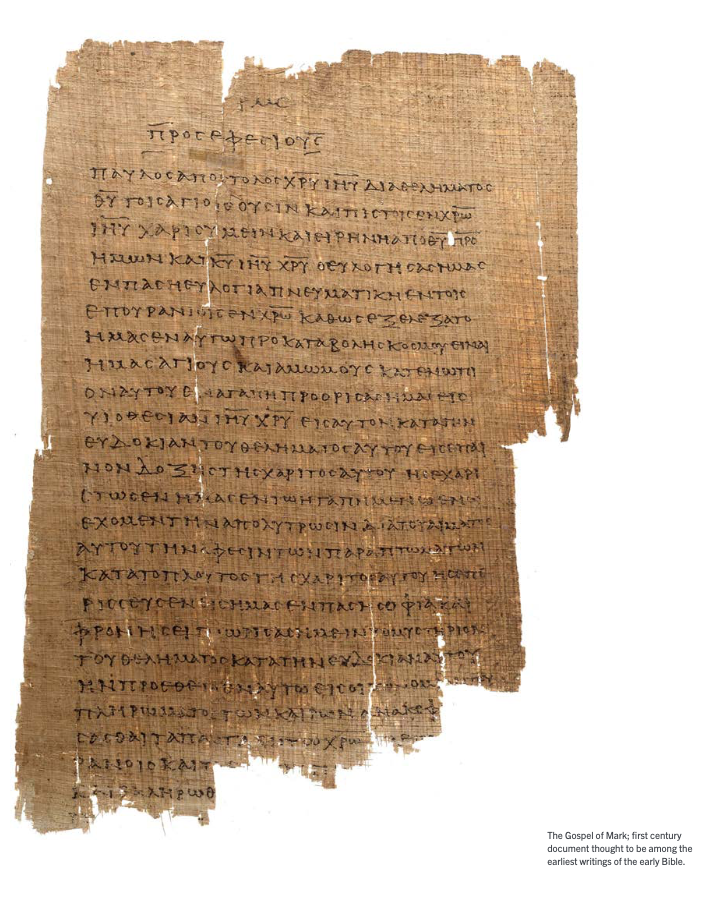 ρμϛ
ΠΡΟϹ ΕΦΕϹΙΟΥϹ
ΠΑΥΛΟϹ ΑΠΟϹΤΟΛΟϹ ΧΡΥ ΙΗΥ ΔΙΑ ΘΕΛΗΜΑΤΟϹ
ΘΥ ΤΟΙϹ ΑΓΙΟΙϹ ΟΥϹΙΝ ΚΑΙ ΠΙϹΤΟΙϹ ΕΝ ΧΡΩ
ΙΗΥ ΧΑΡΙϹ ΥΜΕΙΝ ΚΑΙ ΕΙΡΗΝΗ ΑΠΟ ΘΥ ΠΡΟ
ΗΜΩΝ ΚΑΙ ΚΥ ΙΗΥ ΧΡΥ Ο ΕΥΛΟΓΗϹΑϹ ΗΜΑϹ
ΕΝ ΠΑϹΗ ΕΥΛΟΓΙΑ ΠΝΕΥΜΑΤΙΚΗ ΕΝ ΤΟΙϹ
ΕΠΟΥΡΑΝΙΟΙϹ ΕΝ ΧΡΩ ΚΑΘΩϹ ΕΞΕΛΕΞΑΤΟ
ΗΜΑϹ ΕΝ ΑΥΤΩ ΠΡΟ ΚΑΤΑΒΟΛΗϹ ΚΟϹΜΟΥ ΕΙΝΑΙ
ΗΜΑϹ ΑΓΙΟΥϹ ΚΑΙ ΑΜΩΜΟΥϹ ΚΑΤΕΝΩΠΙ
ΟΝ ΑΥΤΟΥ ΕΝ ΑΓΑΠΗ ΠΡΟΟΡΙϹΑϹ ΗΜΑϹ ΕΙϹ
ΥΙΟΘΕϹΙΑΝ ΙΗΥ ΧΡΥ ΕΙϹ ΑΥΤΟΝ ΚΑΤΑ ΤΗΝ
ΕΥΔΟΚΙΑΝ ΤΟΥ ΘΕΛΗΜΑΤΟϹ ΑΥΤΟΥ ΕΙϹ ΕΠΑΙ
ΝΟΝ ΔΟΞΗϹ ΤΗϹ ΧΑΡΙΤΟϹ ΑΥΤΟΥ ΗϹ ΕΧΑΡΙ
ϹΤΩϹΕΝ ΗΜΑϹ ΕΝ ΤΩ ΗΓΑΠΗΜΕΝΩ ΕΝ Ω
ΕΧΟΜΕΝ ΤΗΝ ΑΠΟΛΥΤΡΩϹΙΝ ΔΙΑ ΤΟΥ ΑΙΜΑΤΟϹ
ΑΥΤΟΥ ΤΗΝ ΑΦΕϹΙΝ ΤΩΝ ΠΑΡΑΠΤΩΜΑΤΩΝ
ΚΑΤΑ ΤΟ ΠΛΟΥΤΟϹ ΤΗϹ ΧΑΡΙΤΟϹ ΑΥΤΟΥ ΗϹ ΕΠΕ
ΡΙϹϹΕΥϹΕΝ ΕΙϹ ΗΜΑϹ ΕΝ ΠΑϹΗ ϹΟΦΙΑ ΚΑΙ
ΦΡΟΝΗϹΕΙ ΓΝΩΡΙϹΑϹ ΗΜΕΙΝ ΤΟ ΜΥϹΤΗΡΙΟΝ
ΤΟΥ ΘΕΛΗΜΑΤΟϹ ΚΑΤΑ ΤΗΝ ΕΥΔΟΚΙΑΝ ΑΥΤΟΥ
ΗΝ ΠΡΟΕΘΕΤΟ ΕΝ ΑΥΤΩ ΕΙϹ
ΠΛΗΡΩΜΑΤΟϹ ΤΩΝ ΚΑΙΡΩΝ ΑΝΑΚΕΦ
ϹΑϹΘΑΙ ΤΑ ΠΑΝΤΑ ΕΝ ΤΩ ΧΡΩ
ΡΑΝΟΙϹ ΚΑΙ Τ
ΚΑΙ ΕΚΛΗΡΩΘ
The Gospel of Mark; first century
document thought to be among the
earliest writings of the early Bible.